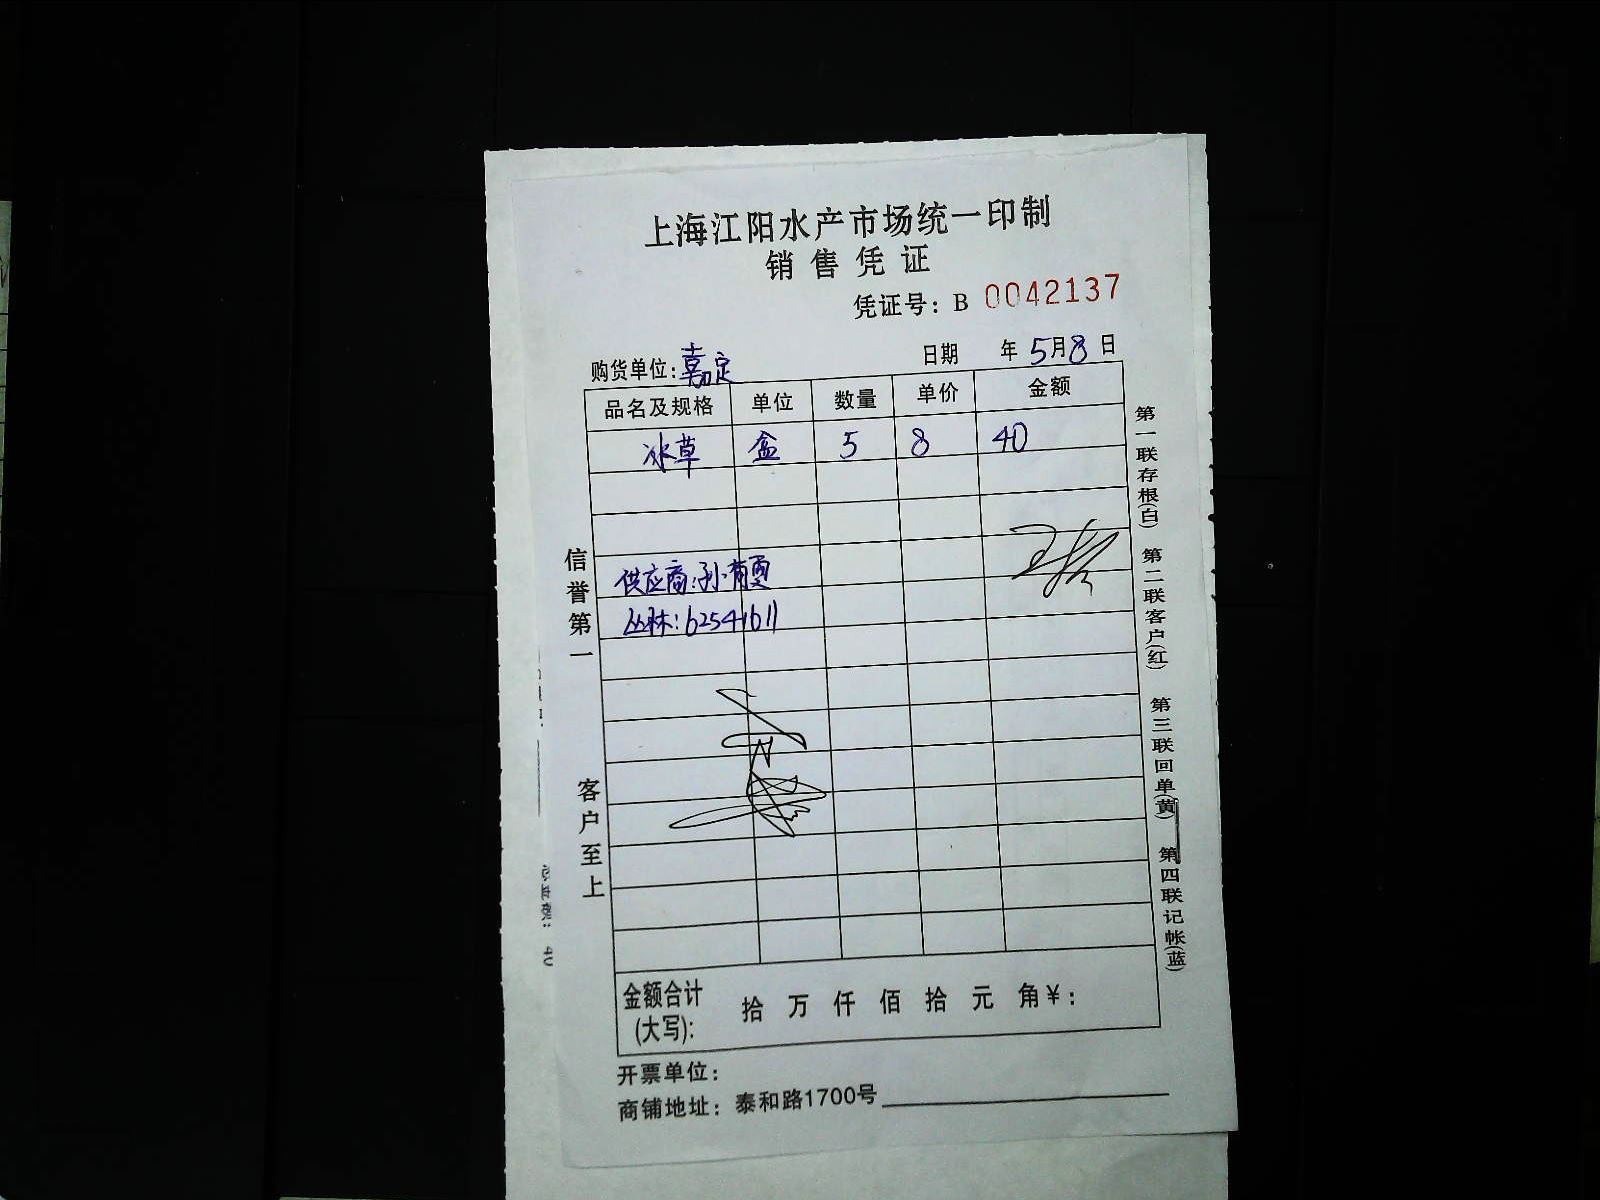 上海江阳水产市场统一印制
销售凭证
凭证号：B 0042137
购货单位：嘉定 日期 年5月8日
品名及规格 单位 数量 单价 金额
冰草 盒 5 8 40
供应商：孙
丛林：62541611
金额合计(大写)： 拾 万 仟 佰 拾 元 角￥：
开票单位：
商铺地址：泰和路1700号
信誉第一 客户至上
第一联存根(白) 第二联客户(红) 第三联回单(黄) 第四联记帐(蓝)